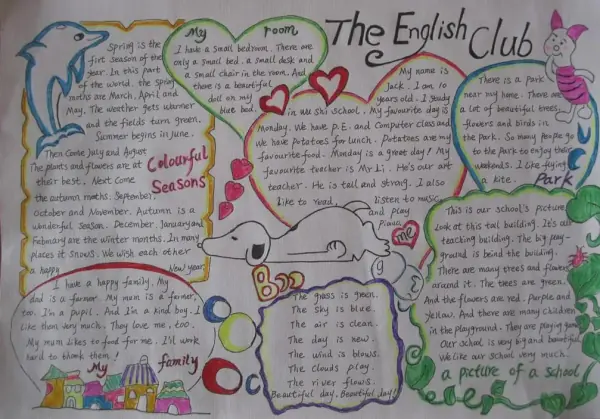 The English Club
Spring is the
first season of the
year. In this part
of the world. the spring
moths are March, April and
May. The weather gets warmer
and the fields turn green.
Summer begins in June.
Then come July and August
The plants and flowers are at
their best. Next come
the autumn months. September.
October and November. Autumn is a
wonderful season. December. January and
February are the winter months. In many
places it snows. We wish each other
a happy New year.
Colourful
Seasons
My room
I have a small bedroom. There are
only a small bed. a small desk and
a small chair in the room. And
there is a beautiful
doll on my
blue bed.
My name is
Jack. I am 10
years old. I study
in Wu Shi School. My favourite day is
Monday. We have P.E. and Computer class and
we have Potatoes for lunch. Potatoes are my
favourite food. Monday is a great day! My
favourite teacher is Mr Li. He's our art
teacher. He is tall and strong. I also
like to read, listen to music
and play
Piano.
me
There is a Park
near my home. There are
a lot of beautiful trees,
flowers and birds in
the Park. So many people go
to the Park to enjoy their
weekends. I like flying
a kite.
Park
This is our school's picture
Look at this tall building. It's our
teaching building. The big play-
ground is beind the building.
There are many trees and flowers
around it. The trees are green.
And the flowers are red. Purple and
yellow. And there are many children
in the playground. They are playing game
Our school is very big and beautiful
We like our school very much.
a picture of a school
I have a happy family. My
dad is a farmer. My mum is a farmer,
too. I'm a pupil. And I'm a kind boy. I
like than very much. They love me, too.
My mum likes to food for me. I'll work
hard to thank them!
My family
The grass is green.
The sky is blue.
The air is clean.
The day is new.
The wind is blows.
The clouds play.
The river flows.
Beautiful day. Beautiful day!